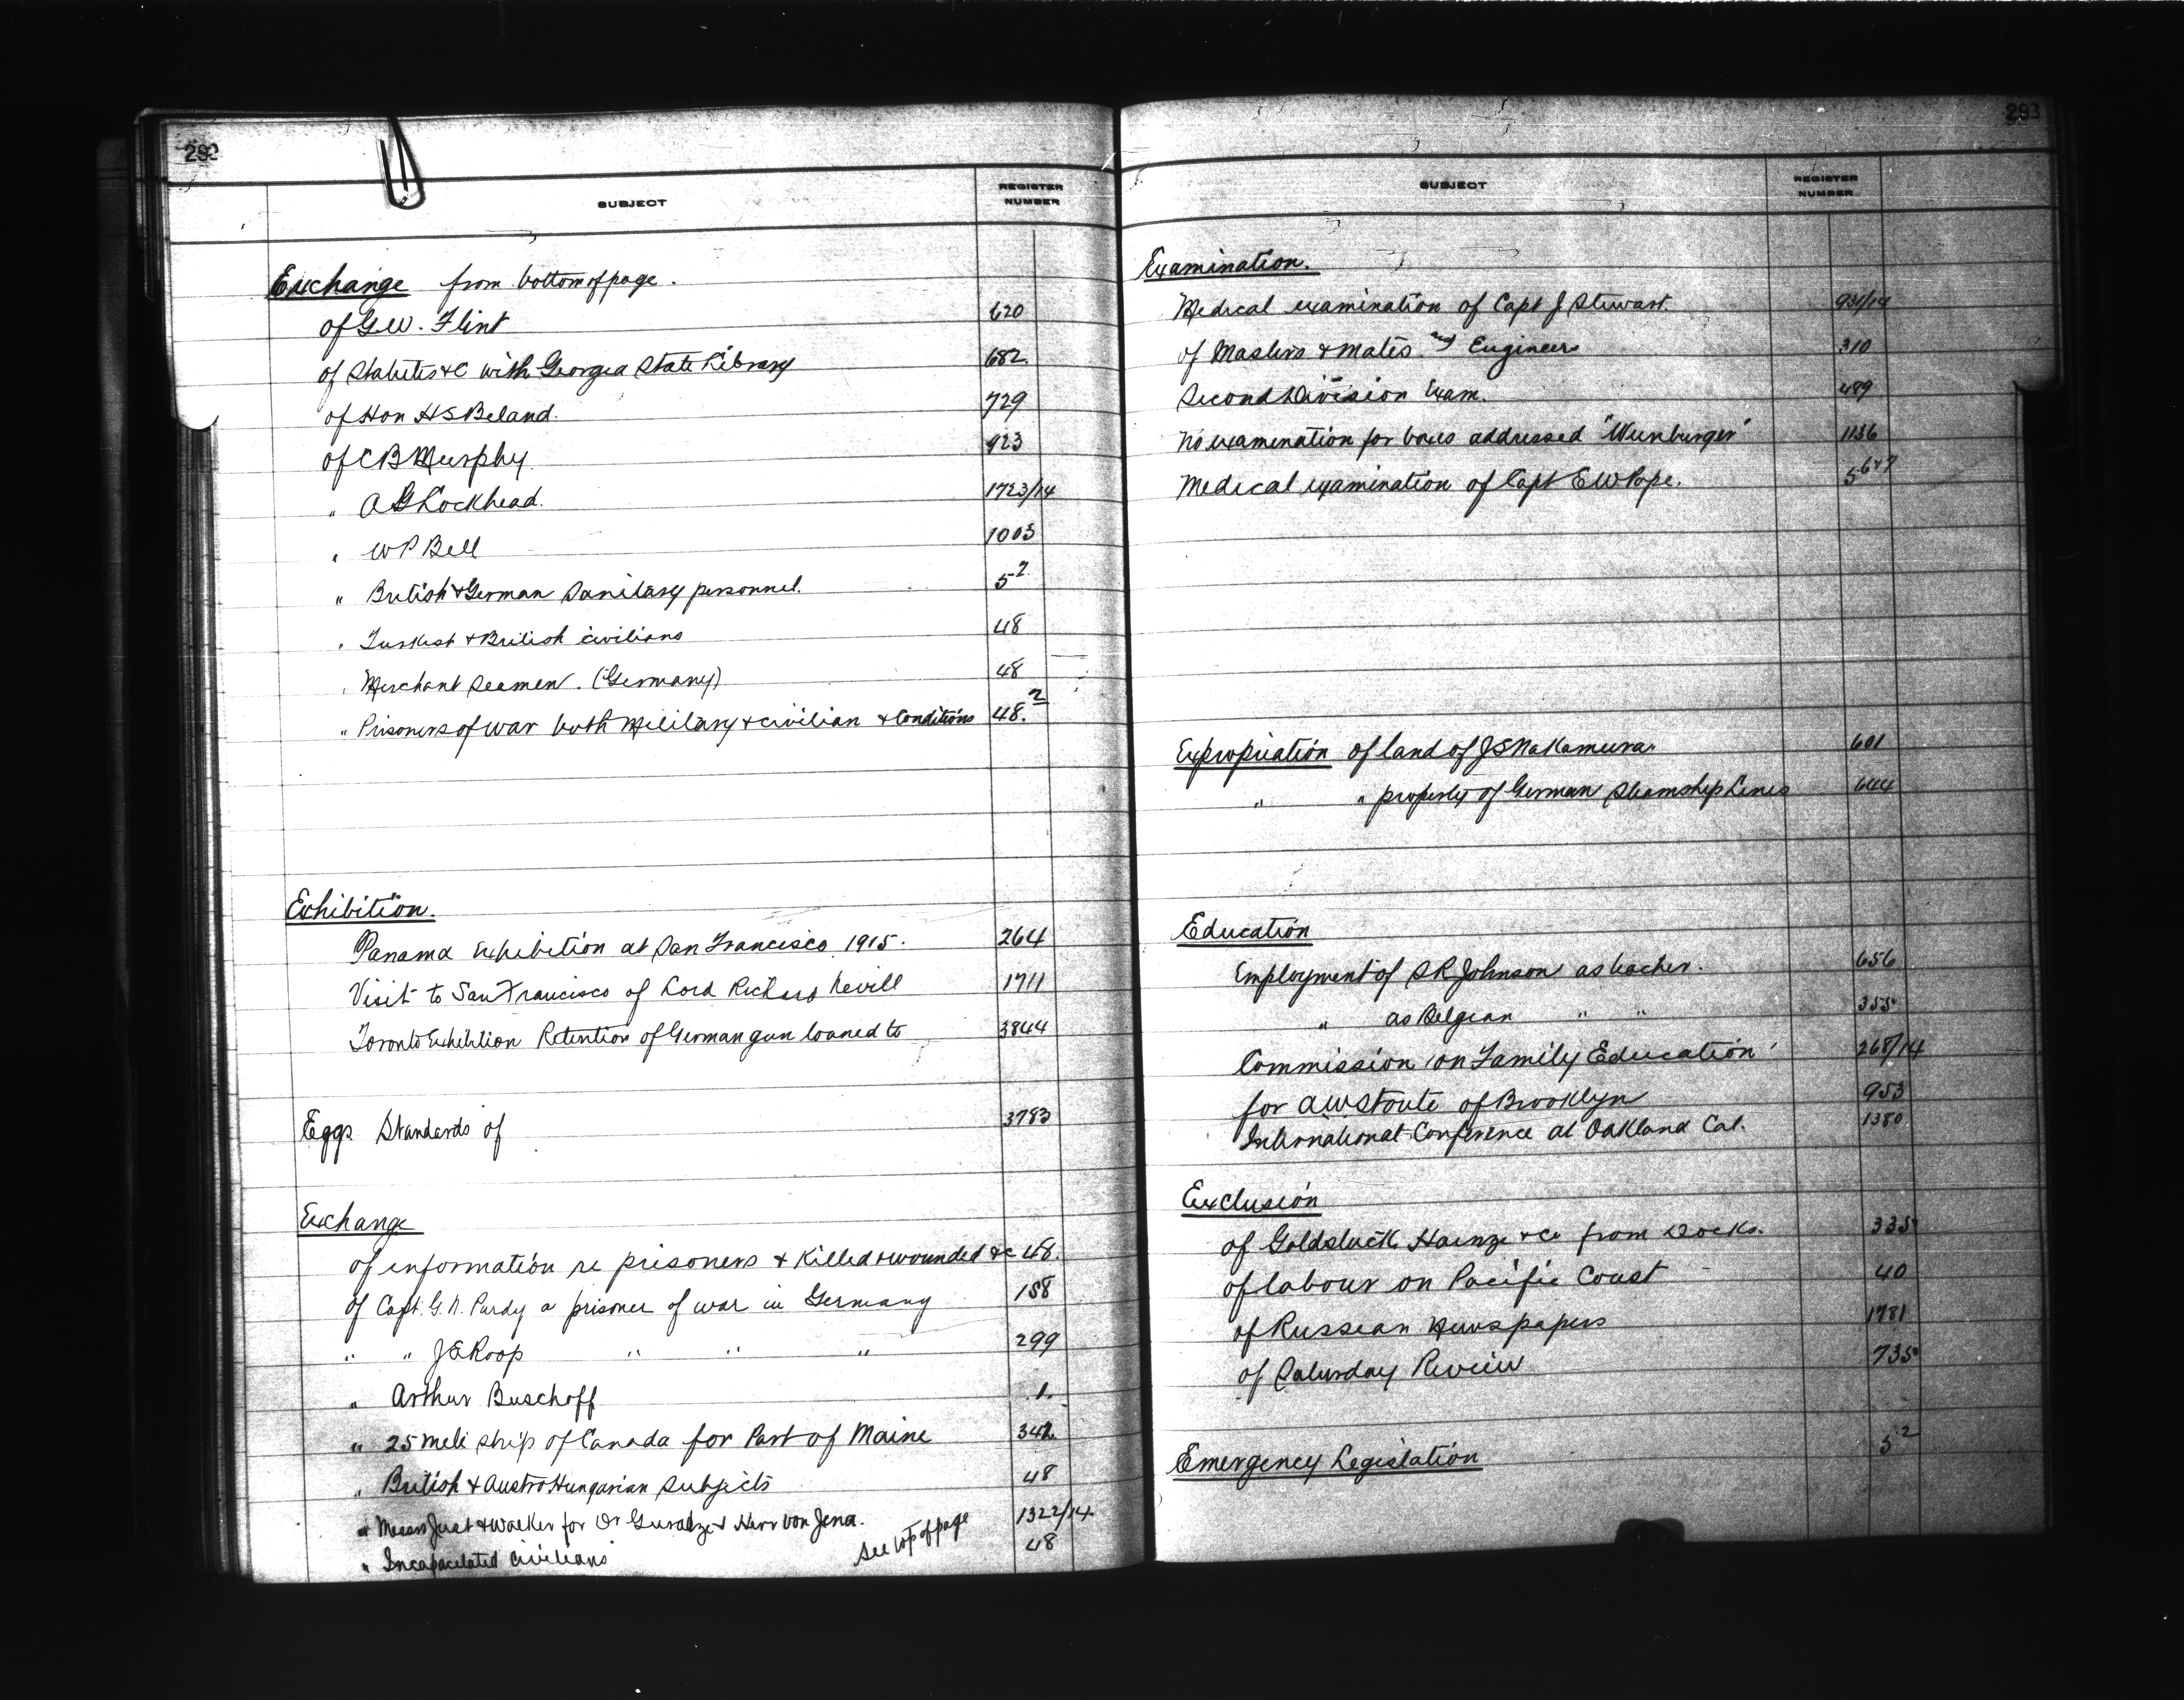 282
SUBJECT
REGISTER
NUMBER
Exchange from bottom of page.
of G.W. Flint 620
of Statutes &c with Georgia State Library 682
of Hon HS Beland. 729
of CB Murphy. 923
" AG Lockhead. 1723/14
" WP Bell 1003
" British & German Sanitary personnel. 5²
" Turkish & British civilians 48
" Merchant Seamen. (Germany) 48
" Prisoners of war both Military & civilian & Conditions 48.²
Exhibition.
Panama Exhibition at San Francisco 1915. 264
Visit to San Francisco of Lord Richard Nevill 1711
Toronto Exhibition Retention of German gun loaned to 3844
Eggs Standards of 3783
Exchange
of information re prisoners & killed & wounded &c 48.
of Capt. G.N. Purdy a prisoner of war in Germany 158
" " JE Roop " " " 299
" Arthur Buschoff 1.
" 25 mile strip of Canada for Part of Maine 342
" British & Austro Hungarian Subjects 48
" Messrs Just & Walker for Dr & Herr von Jena. 1322/14.
" Incapacitated civilians See top of page 48
283
SUBJECT
REGISTER
NUMBER
Examination.
Medical examination of Capt J Stewart. 931/14
of Masters & Mates. and Engineers 310
Second Division Exam. 489
No examination for boxes addressed "Wienburger" 1136
Medical examination of Capt EW Pope. 5
Expropriation of land of JS Nakamura. 601
" " property of German Steamship Lines 644
Education
Employment of SR Johnson as teacher. 656
" as Belgian " " 355
Commission on Family Education 268/14
for AW Stoute of Brooklyn 953
International Conference at Oakland Cal. 1380
Exclusion
of & Co from Docks. 335
of labour on Pacific Coast 40
of Russian Newspapers 1781
of Saturday Review 735
Emergency Legislation 5²